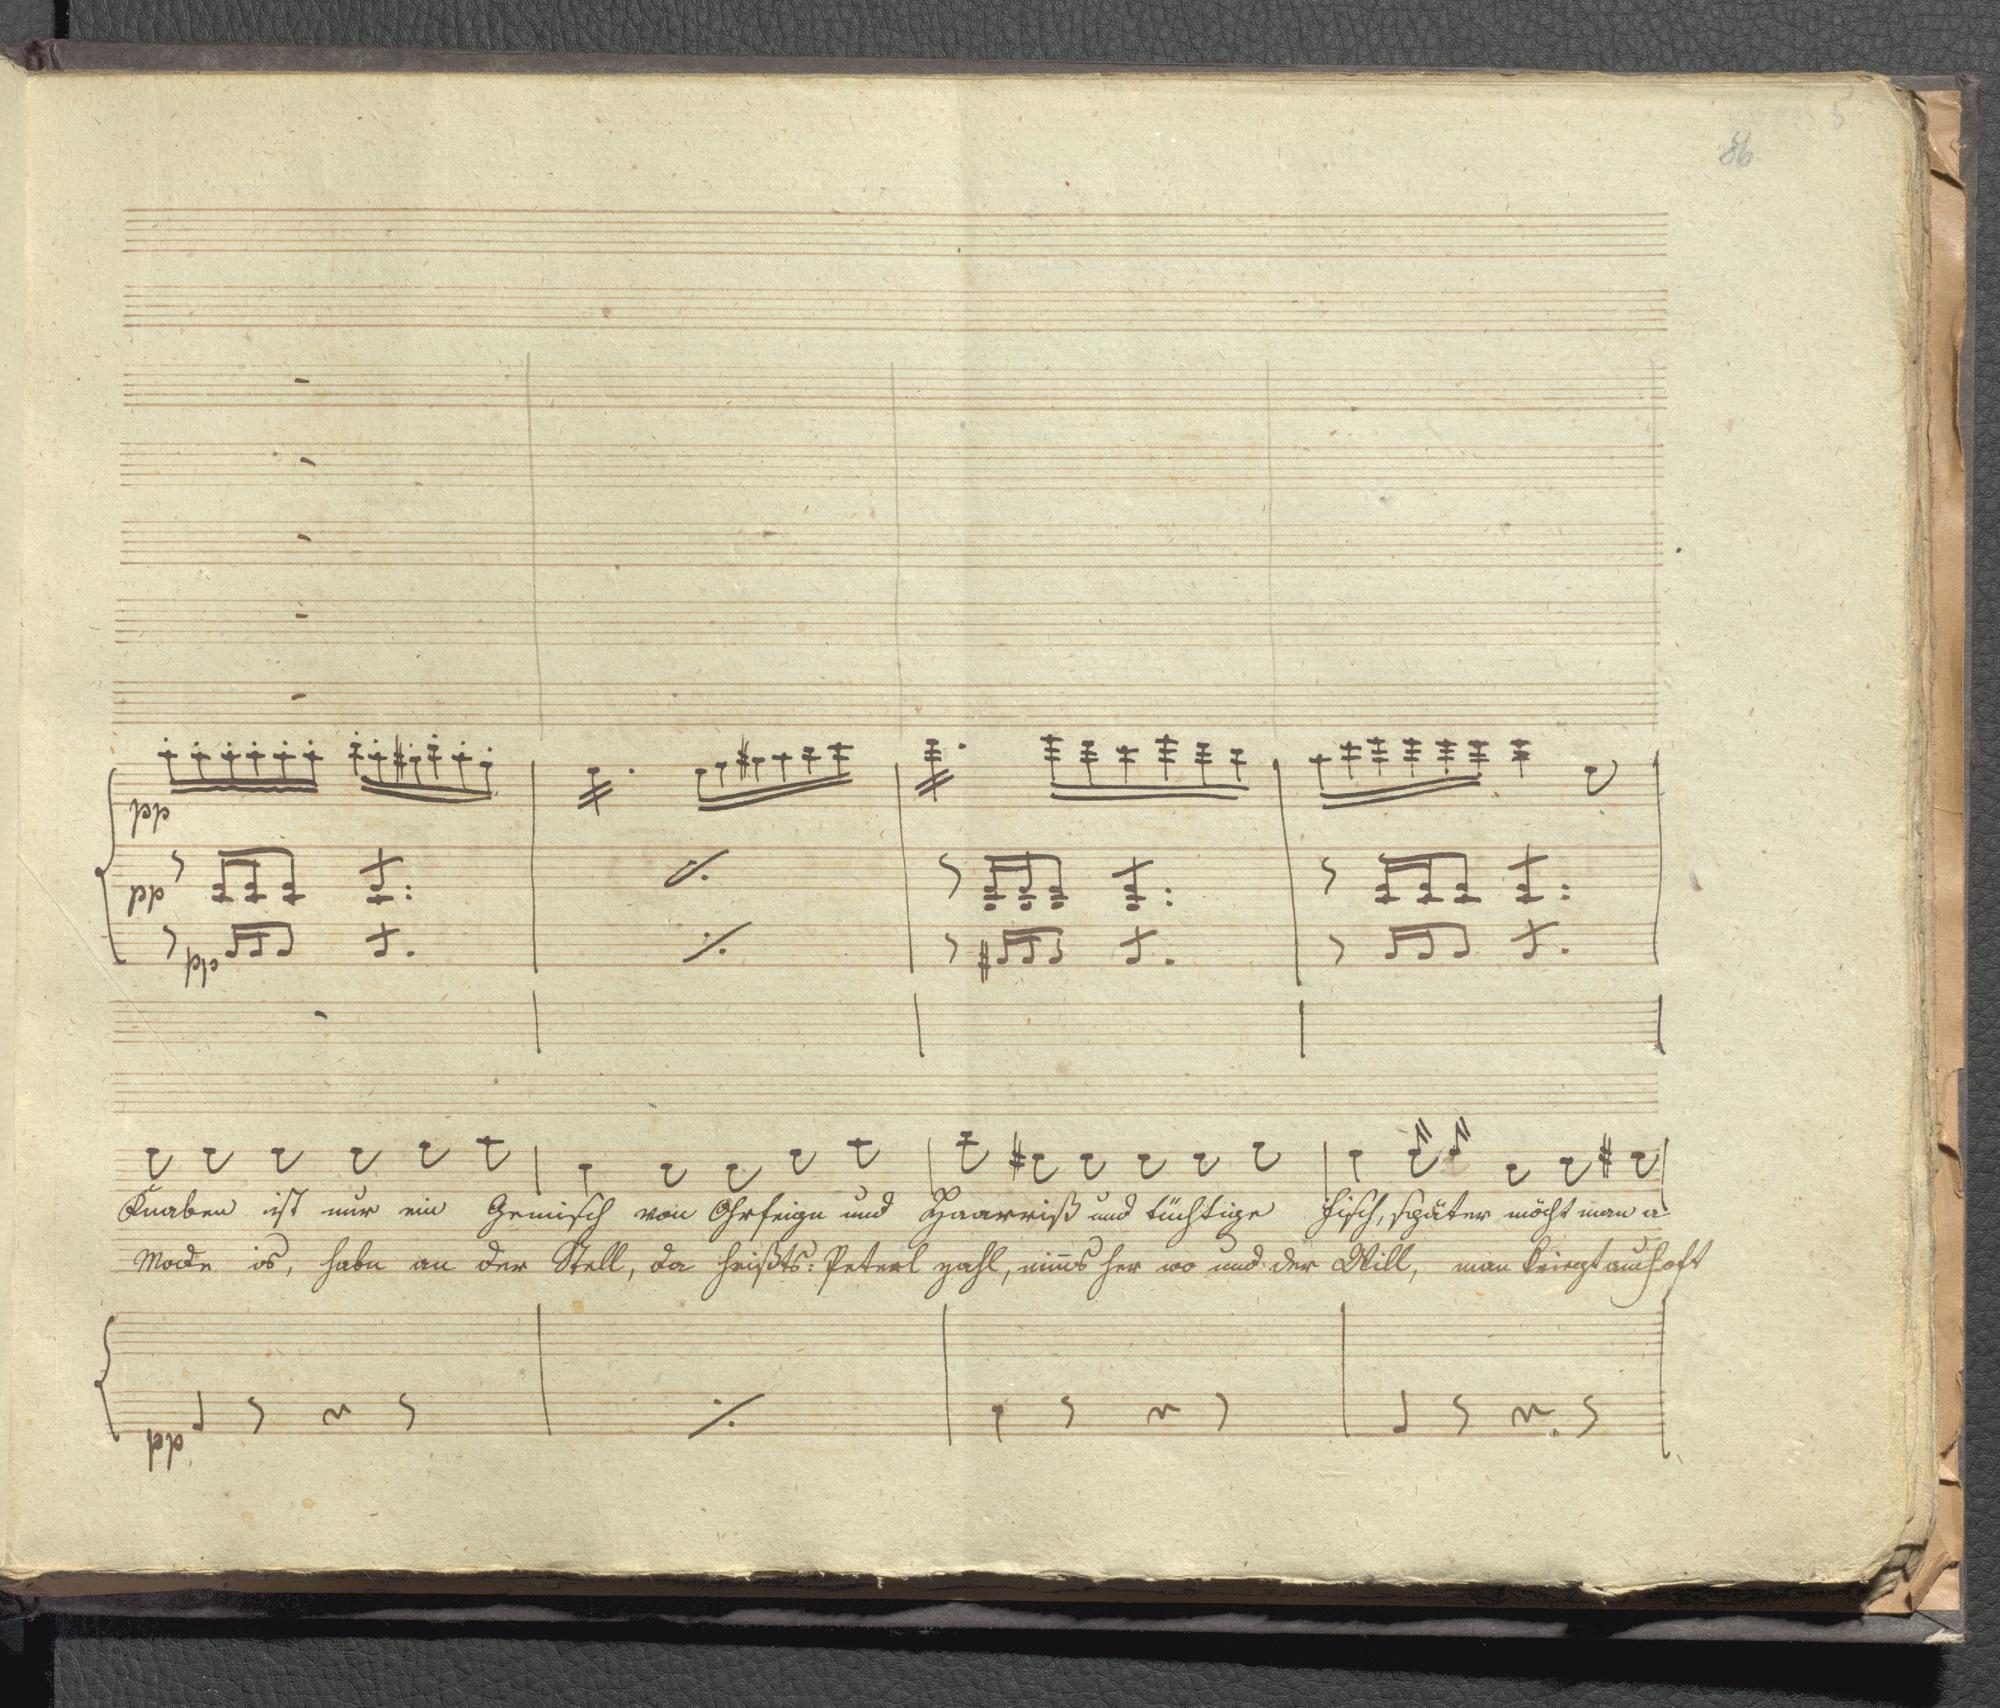 86
5
pp
pp
pp
Knaben ist nur ein Gemisch von Ohrfeign und Haarriß und tüchtige Fisch, später möcht man a
Mode is, habn an der Stell, da heißts: Peterl zahl, nim̅s her wo und der Will, man kriegt auch oft
pp